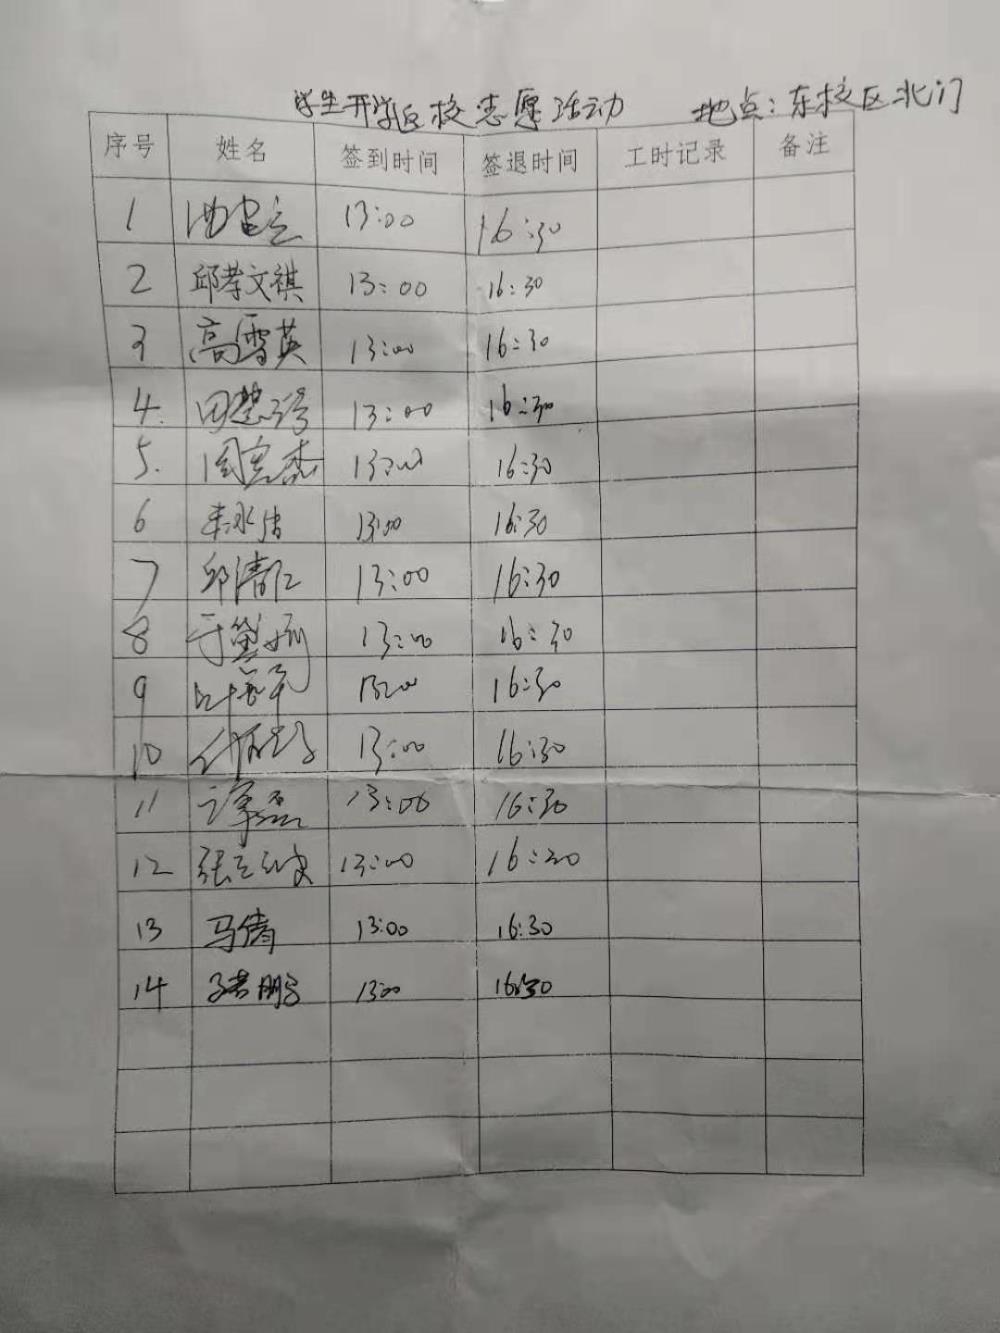 学生开学返校志愿活动 地点：东校区北门
序号 姓名 签到时间 签退时间 工时记录 备注
1 13:00 16:30
2 邱孝文祺 13:00 16:30
3 高雪英 13:00 16:30
4. 田楚 13:00 16:30
5. 周宪杰 13:00 16:30
6 13:00 16:30
7 邱清仁 13:00 16:30
8 于黛婀 13:00 16:30
9 13:00 16:30
10 13:00 16:30
11 谭磊 13:00 16:30
12 张 13:00 16:30
13 马倩 13:00 16:30
14 13:00 16:30